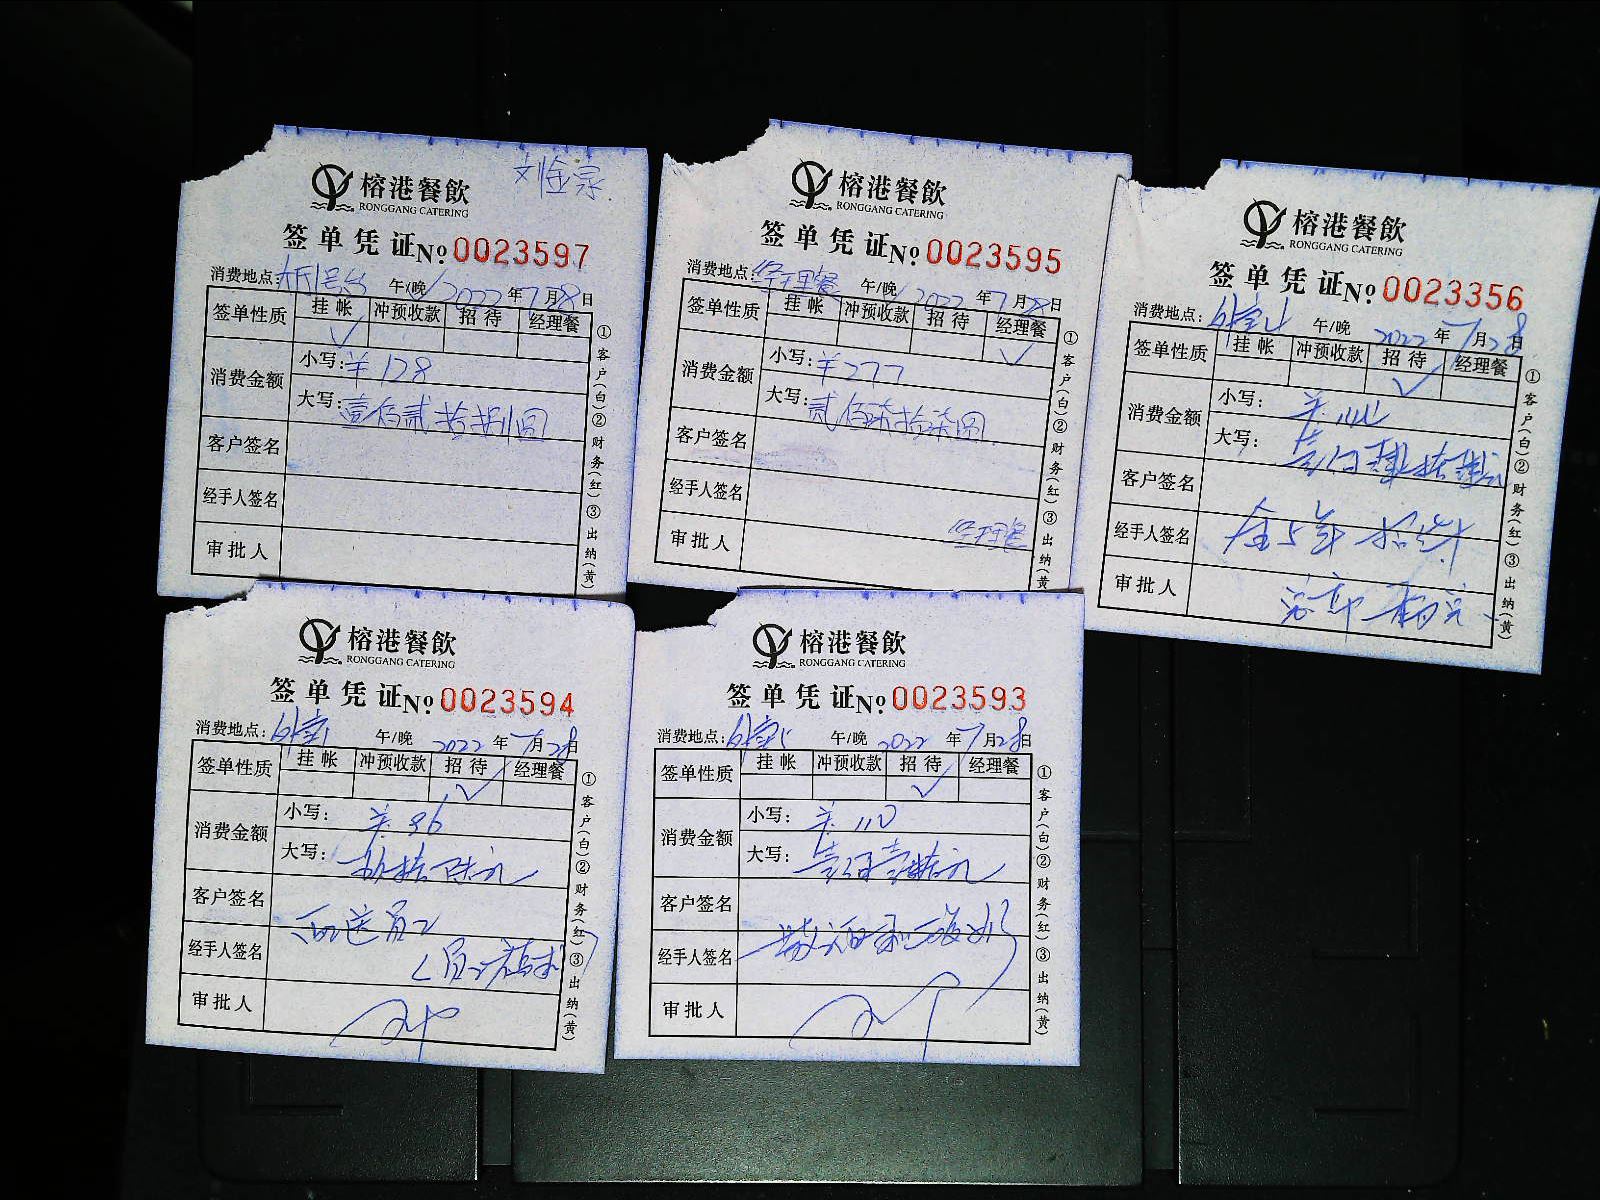 刘金宗
榕港餐飲
RONGGANG CATERING
签单凭证No 0023597
消费地点: 午/晚 2022年7月28日
签单性质 挂帐 冲预收款 招待 经理餐
消费金额 小写: ¥128
大写: 壹佰贰拾捌圆
客户签名
经手人签名
审批人
①客户(白)②财务(红)③出纳(黄)
榕港餐飲
RONGGANG CATERING
签单凭证No 0023595
消费地点: 经理餐 午/晚 2022年7月28日
签单性质 挂帐 冲预收款 招待 经理餐
消费金额 小写: ¥277
大写: 贰佰柒拾柒圆
客户签名
经手人签名
审批人 经理餐
①客户(白)②财务(红)③出纳(黄)
榕港餐飲
RONGGANG CATERING
签单凭证No 0023356
消费地点: 午/晚 2022年7月28日
签单性质 挂帐 冲预收款 招待 经理餐
消费金额 小写:
大写:
客户签名
经手人签名 招待
审批人
①客户(白)②财务(红)③出纳(黄)
榕港餐飲
RONGGANG CATERING
签单凭证No 0023594
消费地点: 午/晚 2022年7月28日
签单性质 挂帐 冲预收款 招待 经理餐
消费金额 小写: ¥96
大写: 玖拾陆元
客户签名
经手人签名
审批人
①客户(白)②财务(红)③出纳(黄)
榕港餐飲
RONGGANG CATERING
签单凭证No 0023593
消费地点: 午/晚 2022年7月28日
签单性质 挂帐 冲预收款 招待 经理餐
消费金额 小写: ¥110
大写: 壹佰壹拾元
客户签名
经手人签名
审批人
①客户(白)②财务(红)③出纳(黄)